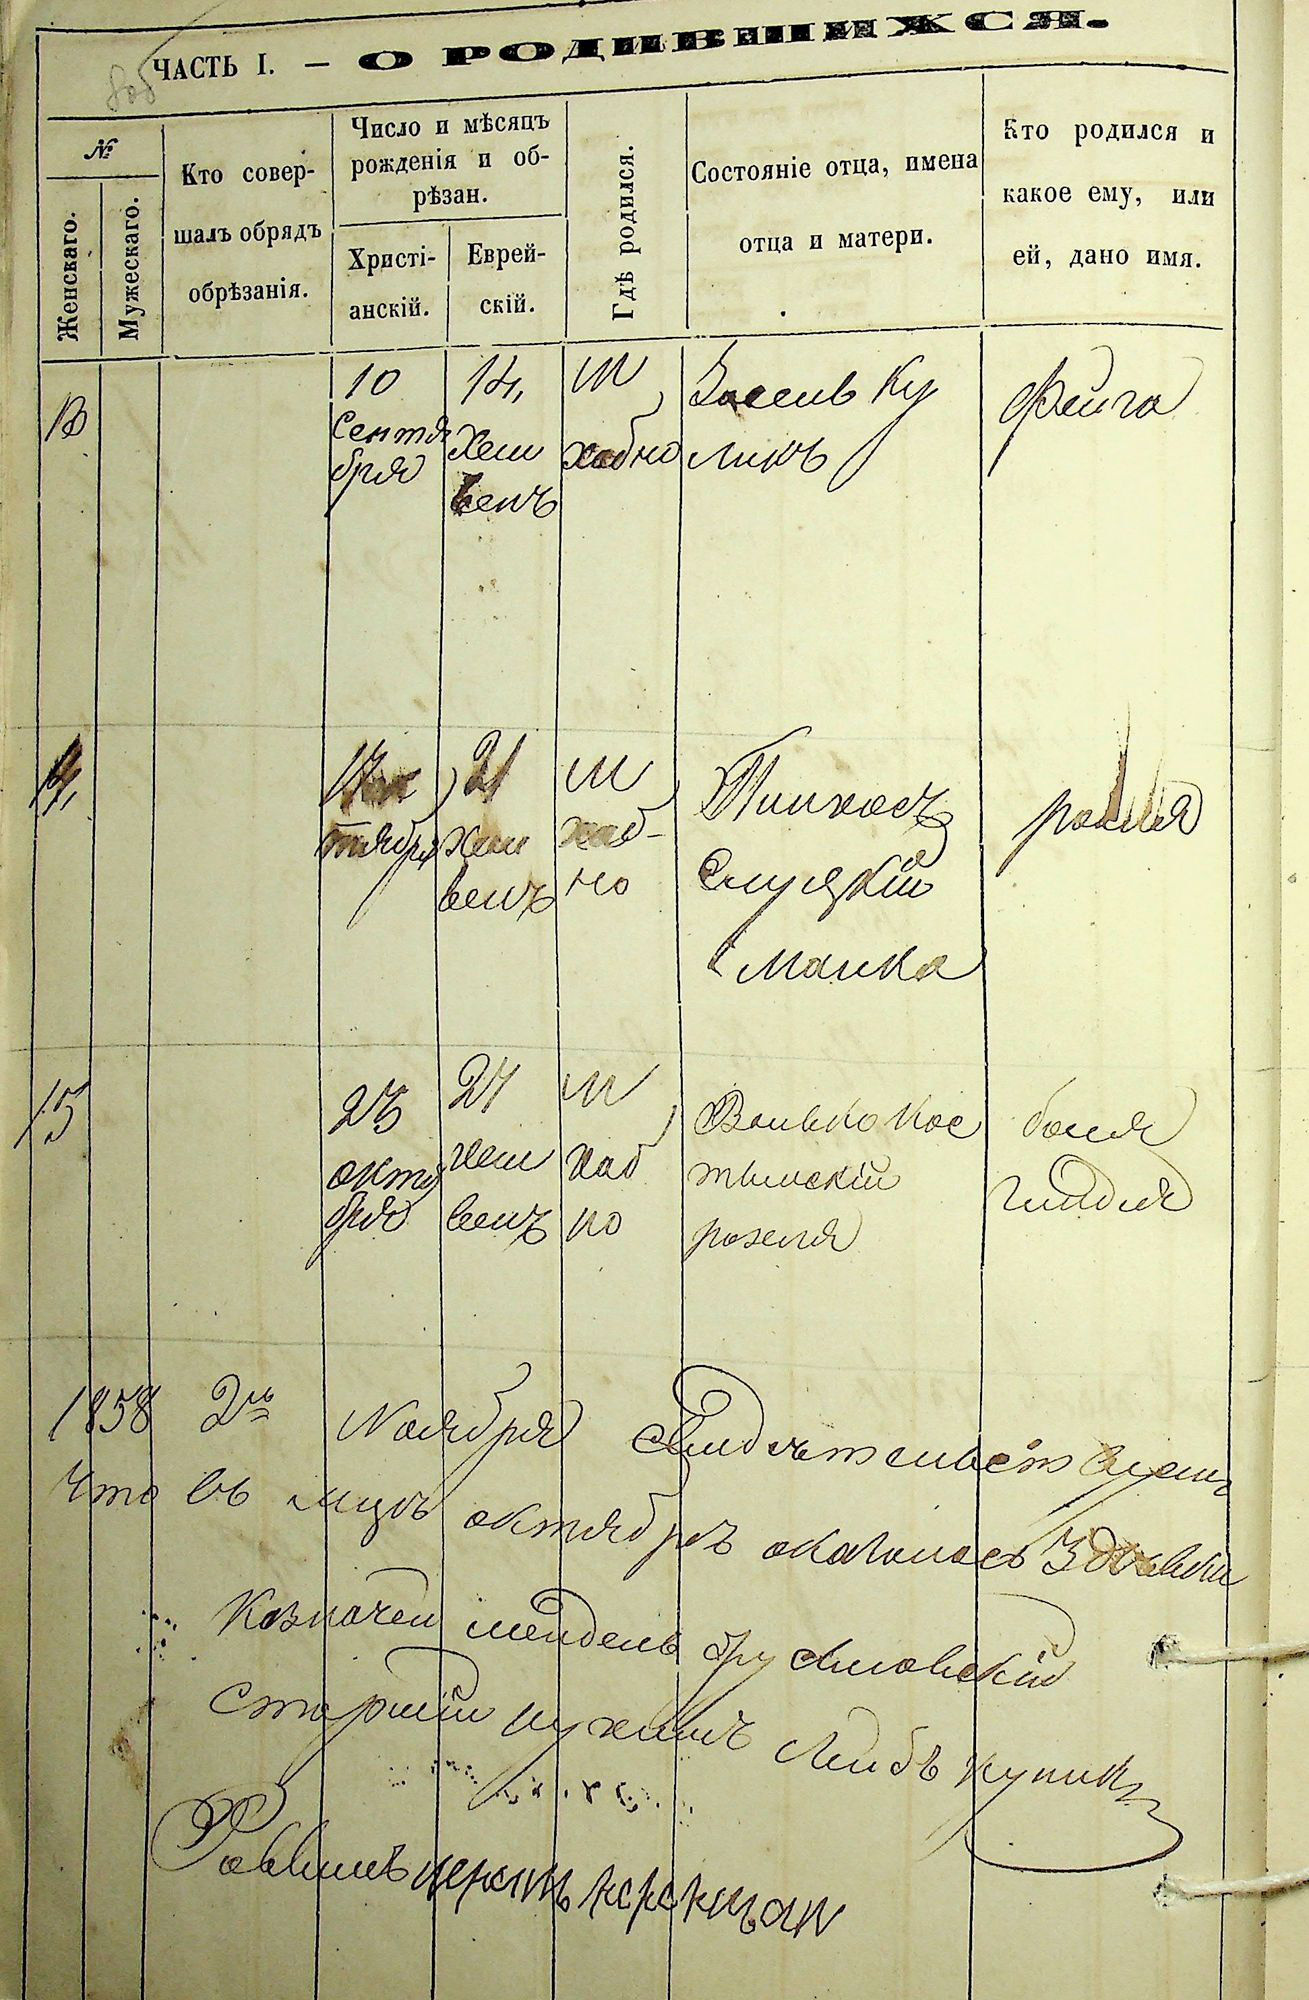 ЧАСТЬ I. — О РОДИВШИХСЯ.
№
Женскаго.
Мужескаго.
Кто совер-
шалъ обрядъ
обрѣзанія.
Число и мѣсяцъ
рожденія и об-
рѣзан.
Христі-
анскій.
Еврей-
скій.
Гдѣ родился.
Состояніе отца, имена
отца и матери.
Кто родился и
какое ему, или
ей, дано имя.
13
10
Сентя
бря
14,
Хеш
венъ
м
хабно
Ку
ликъ
Фейга
14,
тября
21
хеш
венъ
м
хаб-
но
Пинхосъ
Слуцкій
Малка
рохля
15
23
октя
бря
27
хеш
венъ
м
хаб
но
Волько Кос
розеля
бася
гиндля
1858 2го Ноября свидѣтельствуемъ
что въ мцѣ октябрѣ оказалось 3 дѣвки
Казначей мендель брусиловскій
Старшій Лейбъ купникъ
Раввинъ